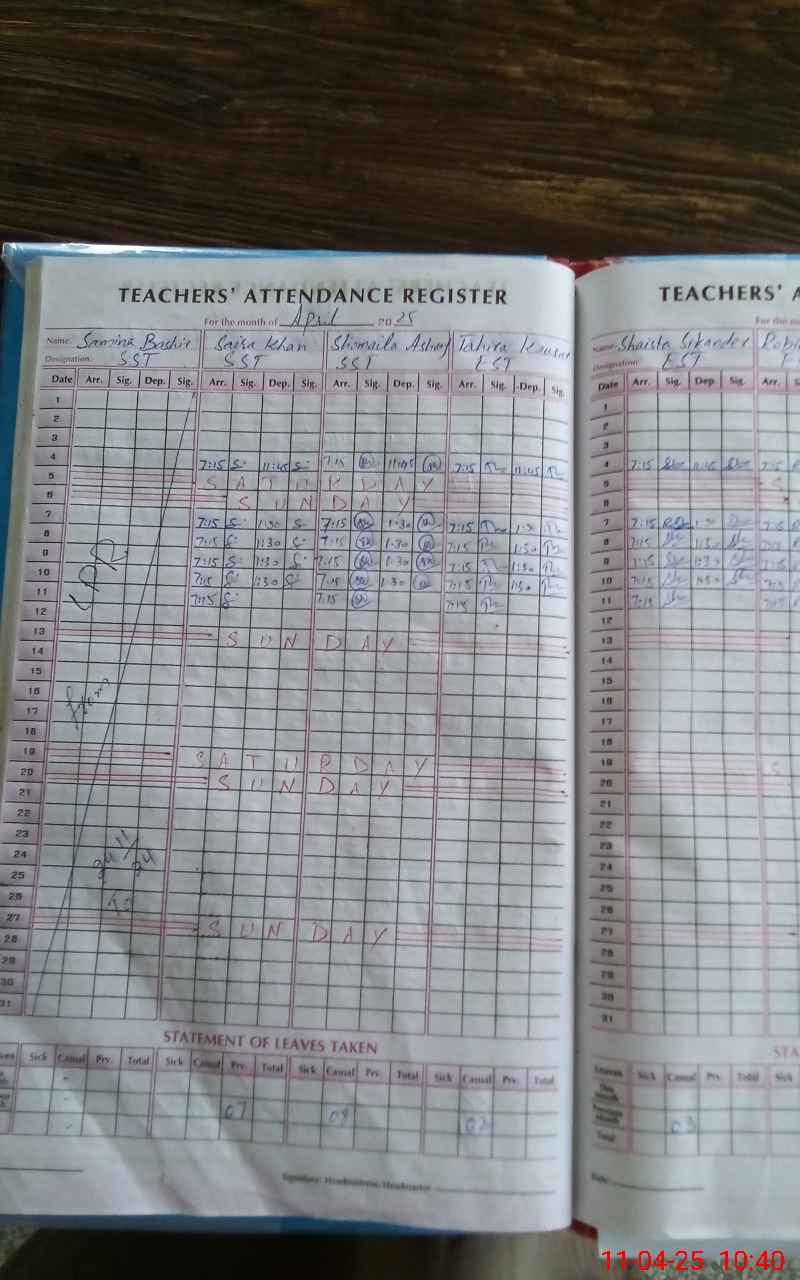 TEACHERS' ATTENDANCE REGISTER
For the month of April 2025
Name: Samina Bashir Saiqa Khan Shomaila Ashraf Tahira Kausar
Designation: SST SST SST EST
Date Arr. Sig. Dep. Sig. Arr. Sig. Dep. Sig. Arr. Sig. Dep. Sig. Arr. Sig. Dep. Sig.
1
2
3
4 7:15 11:45 7:15 11:45 7:15 11:45
5 SATURDAY
6 SUNDAY
7 7:15 1:30 7:15 1:30 7:15 1:30
8 7:15 1:30 7:15 1:30 7:15 1:30
9 7:15 1:30 7:15 1:30 7:15 1:30
10 7:15 1:30 7:15 1:30 7:15 1:30
11 7:15 7:15 7:15
12
13 SUNDAY
14
15
16
17 from
18
19 SATURDAY
20 SUNDAY
21
22
23
24
25
26 to
27 SUNDAY
28
29
30
31
STATEMENT OF LEAVES TAKEN
Sick Casual Prv. Total Sick Casual Prv. Total Sick Casual Prv. Total Sick Casual Prv. Total
07 09 02
Signature: Headmistress/Headmaster
TEACHERS' A
Name: Shaista Sikander
Designation: EST
Date Arr. Sig. Dep. Sig. Arr.
1
2
3
4 7:15 11:45 7:15
5 S
6
7 7:15 1:30
8 7:15 1:30
9 7:15 1:30
10 7:15 1:30
11 7:15
12
13
14
15
16
17
18
19 S
20
21
22
23
24
25
26
27
28
29
30
31
STA
Leaves Sick Casual Prv. Total Sick
This Month
Previous Month 03
Total
Date:
11-04-25 10:40